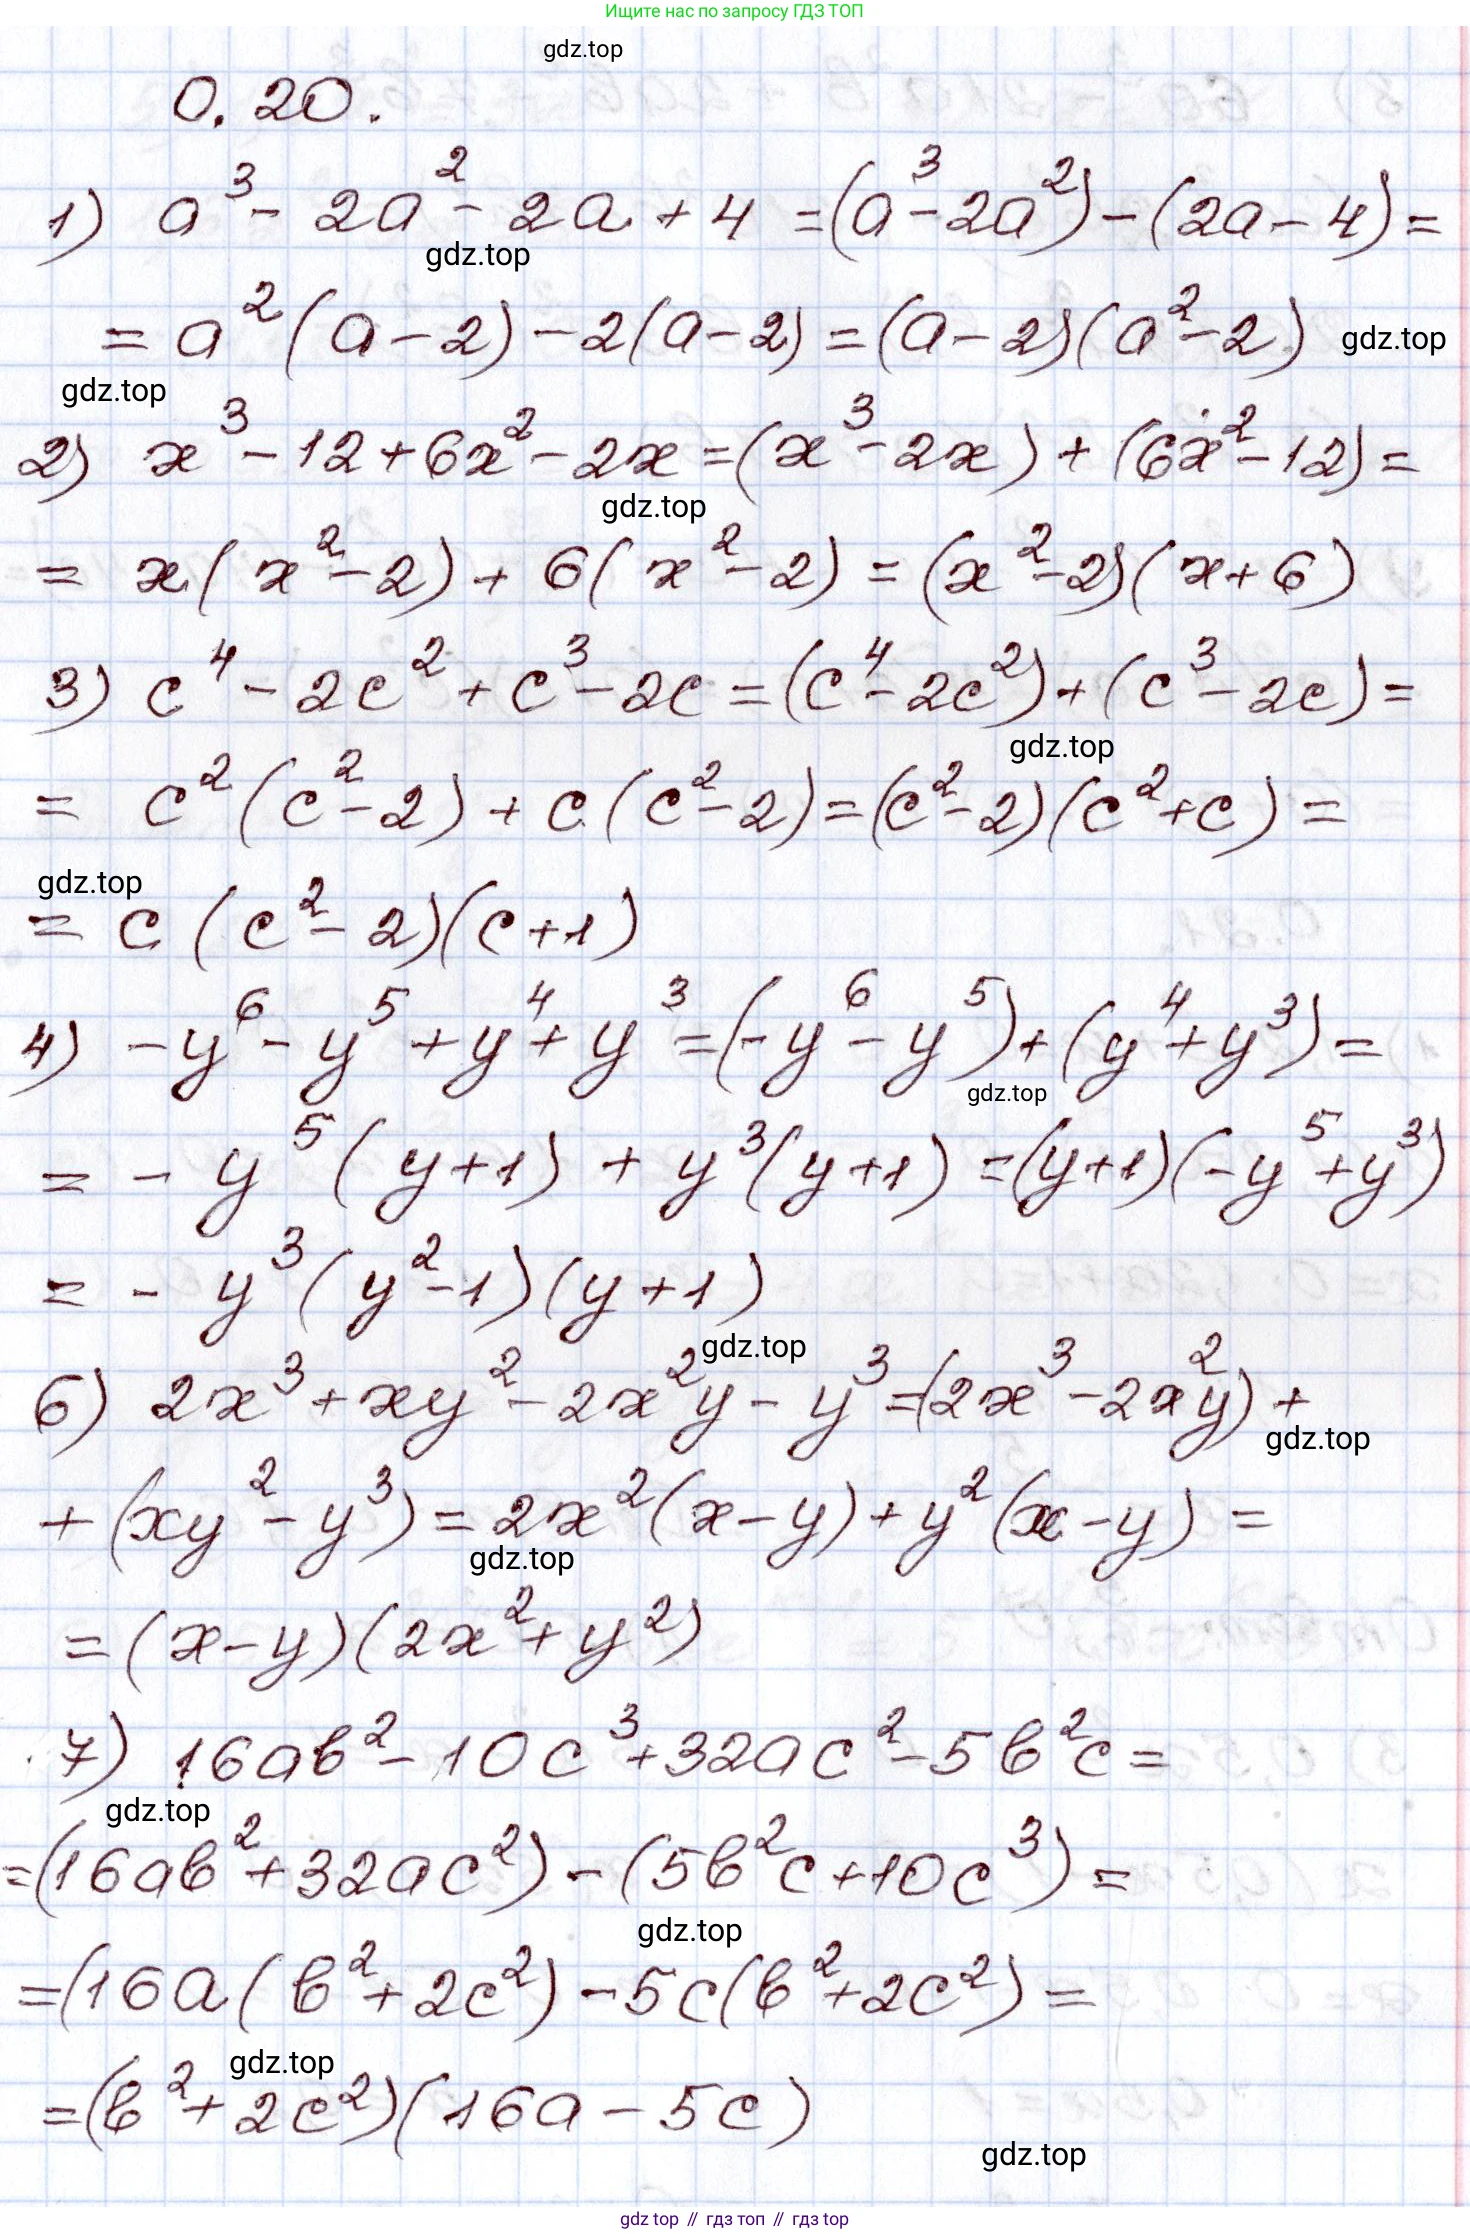 Ищите нас по запросу ГДЗ ТОП
gdz.top
0.20.
1) a³ - 2a² - 2a + 4 = (a³ - 2a²) - (2a - 4) =
gdz.top
= a²(a - 2) - 2(a - 2) = (a - 2)(a² - 2)
gdz.top
gdz.top
2) x³ - 12 + 6x² - 2x = (x³ - 2x) + (6x² - 12) =
gdz.top
= x(x² - 2) + 6(x² - 2) = (x² - 2)(x + 6)
3) c⁴ - 2c² + c³ - 2c = (c⁴ - 2c²) + (c³ - 2c) =
gdz.top
= c²(c² - 2) + c(c² - 2) = (c² - 2)(c² + c) =
gdz.top
= c(c² - 2)(c + 1)
4) -y⁶ - y⁵ + y⁴ + y³ = (-y⁶ - y⁵) + (y⁴ + y³) =
gdz.top
= -y⁵(y + 1) + y³(y + 1) = (y + 1)(-y⁵ + y³)
= -y³(y² - 1)(y + 1)
gdz.top
6) 2x³ + xy² - 2x²y - y³ = (2x³ - 2x²y) +
gdz.top
+ (xy² - y³) = 2x²(x - y) + y²(x - y) =
gdz.top
= (x - y)(2x² + y²)
7) 16ab² - 10c³ + 32ac² - 5b²c =
gdz.top
= (16ab² + 32ac²) - (5b²c + 10c³) =
gdz.top
= (16a(b² + 2c²) - 5c(b² + 2c²) =
gdz.top
= (b² + 2c²)(16a - 5c)
gdz.top
gdz top // гдз топ // gdz top